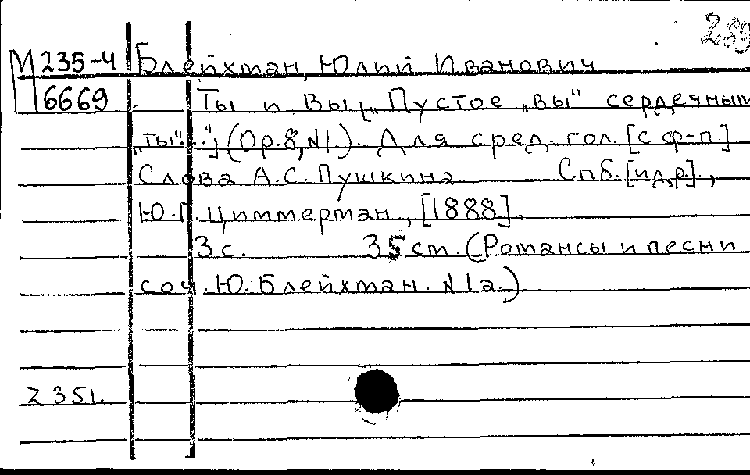 289
М 235-4 Блейхман, Юлий Иванович
6669 Ты и Вы [„Пустое „вы" сердечным
„ты"..."] (Op.8, N1). Для сред. гол. [с ф-п]
Слова А.С. Пушкина Спб. [и др.],
Ю.Г. Циммерман, [1888].
3 с. 35 см. (Романсы и песни
соч. Ю. Блейхман. N 1a.)
Z 351.